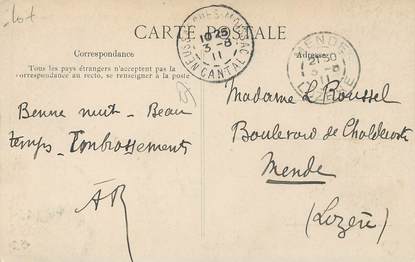 lot
CARTE POSTALE
Correspondance
Tous les pays étrangers n'acceptent pas la
correspondance au recto, se renseigner à la poste
Adresse
10 25
3-8
11
CANTAL
MENDE
21 30
3-8
11
LOZERE
Bonne nuit - Beau
temps - Embrassements
AR
Madame L. Roussel
Boulevard de
Mende
(Lozère)